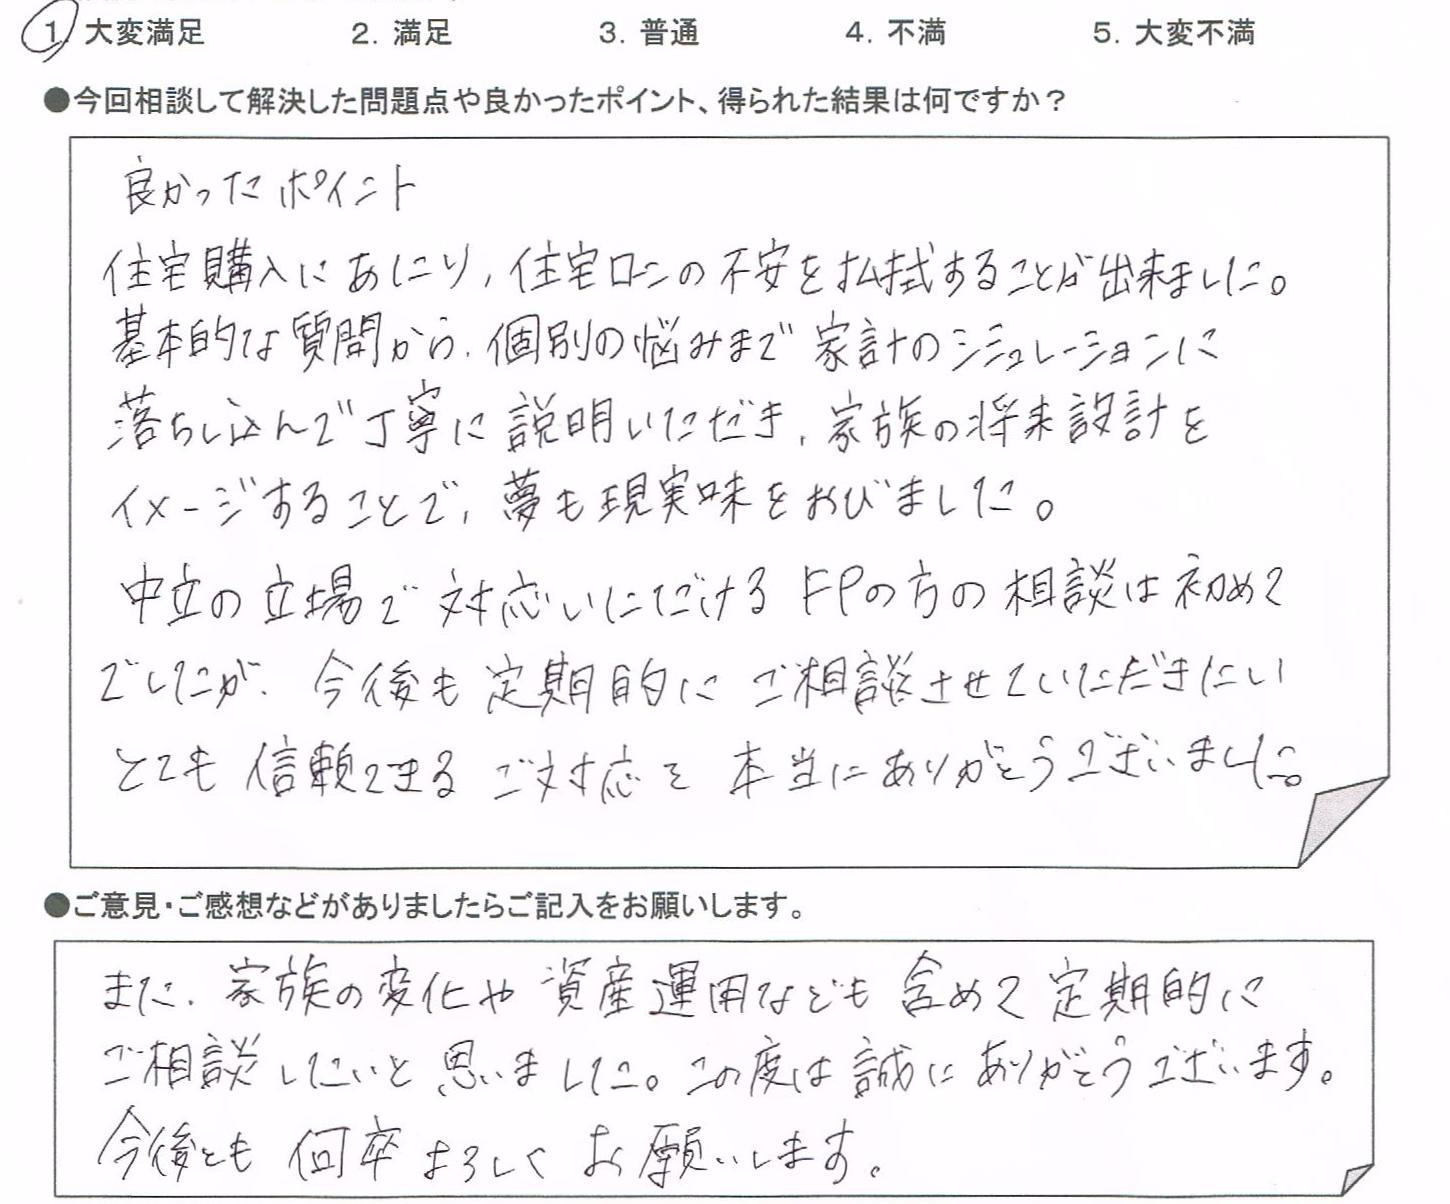 1. 大変満足 2. 満足 3. 普通 4. 不満 5. 大変不満
●今回相談して解決した問題点や良かったポイント、得られた結果は何ですか？
良かったポイント
住宅購入にあたり、住宅ローンの不安を払拭することが出来ました。
基本的な質問から、個別の悩みまで家計のシミュレーションに
落ちし込んで丁寧に説明いただき、家族の将来設計を
イメージすることで、夢も現実味をおびました。
中立の立場で対応いただけるFPの方の相談は初めて
でしたが、今後も定期的にご相談させていただきたい
とても信頼できるご対応を本当にありがとうございました。
●ご意見・ご感想などがありましたらご記入をお願いします。
また、家族の変化や資産運用なども含めて定期的に
ご相談したいと思いました。この度は誠にありがとうございます。
今後とも何卒よろしくお願いします。